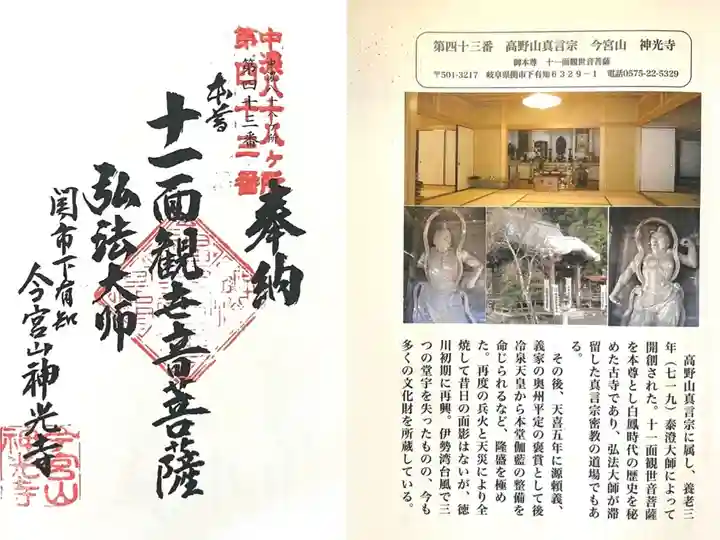 奉納
中濃八十八ヶ所
第四十三番
本尊
十一面観世音菩薩
弘法大師
関市下有知
今宮山神光寺
今宮山
神光寺
第四十三番 高野山真言宗 今宮山 神光寺
御本尊 十一面観世音菩薩
〒501-3217 岐阜県関市下有知6329-1 電話0575-22-5329
高野山真言宗に属し、養老三
年(七一九)泰澄大師によって
開創された。十一面観世音菩薩
を本尊とし白鳳時代の歴史を秘
めた古寺であり、弘法大師が滞
留した真言宗密教の道場でもあ
る。
その後、天喜五年に源頼義、
義家の奥州平定の褒賞として後
冷泉天皇から本堂伽藍の整備を
命じられるなど、隆盛を極め
た。再度の兵火と天災により全
焼して昔日の面影はないが、徳
川初期に再興。伊勢湾台風で三
つの堂宇を失ったものの、今も
多くの文化財を所蔵している。